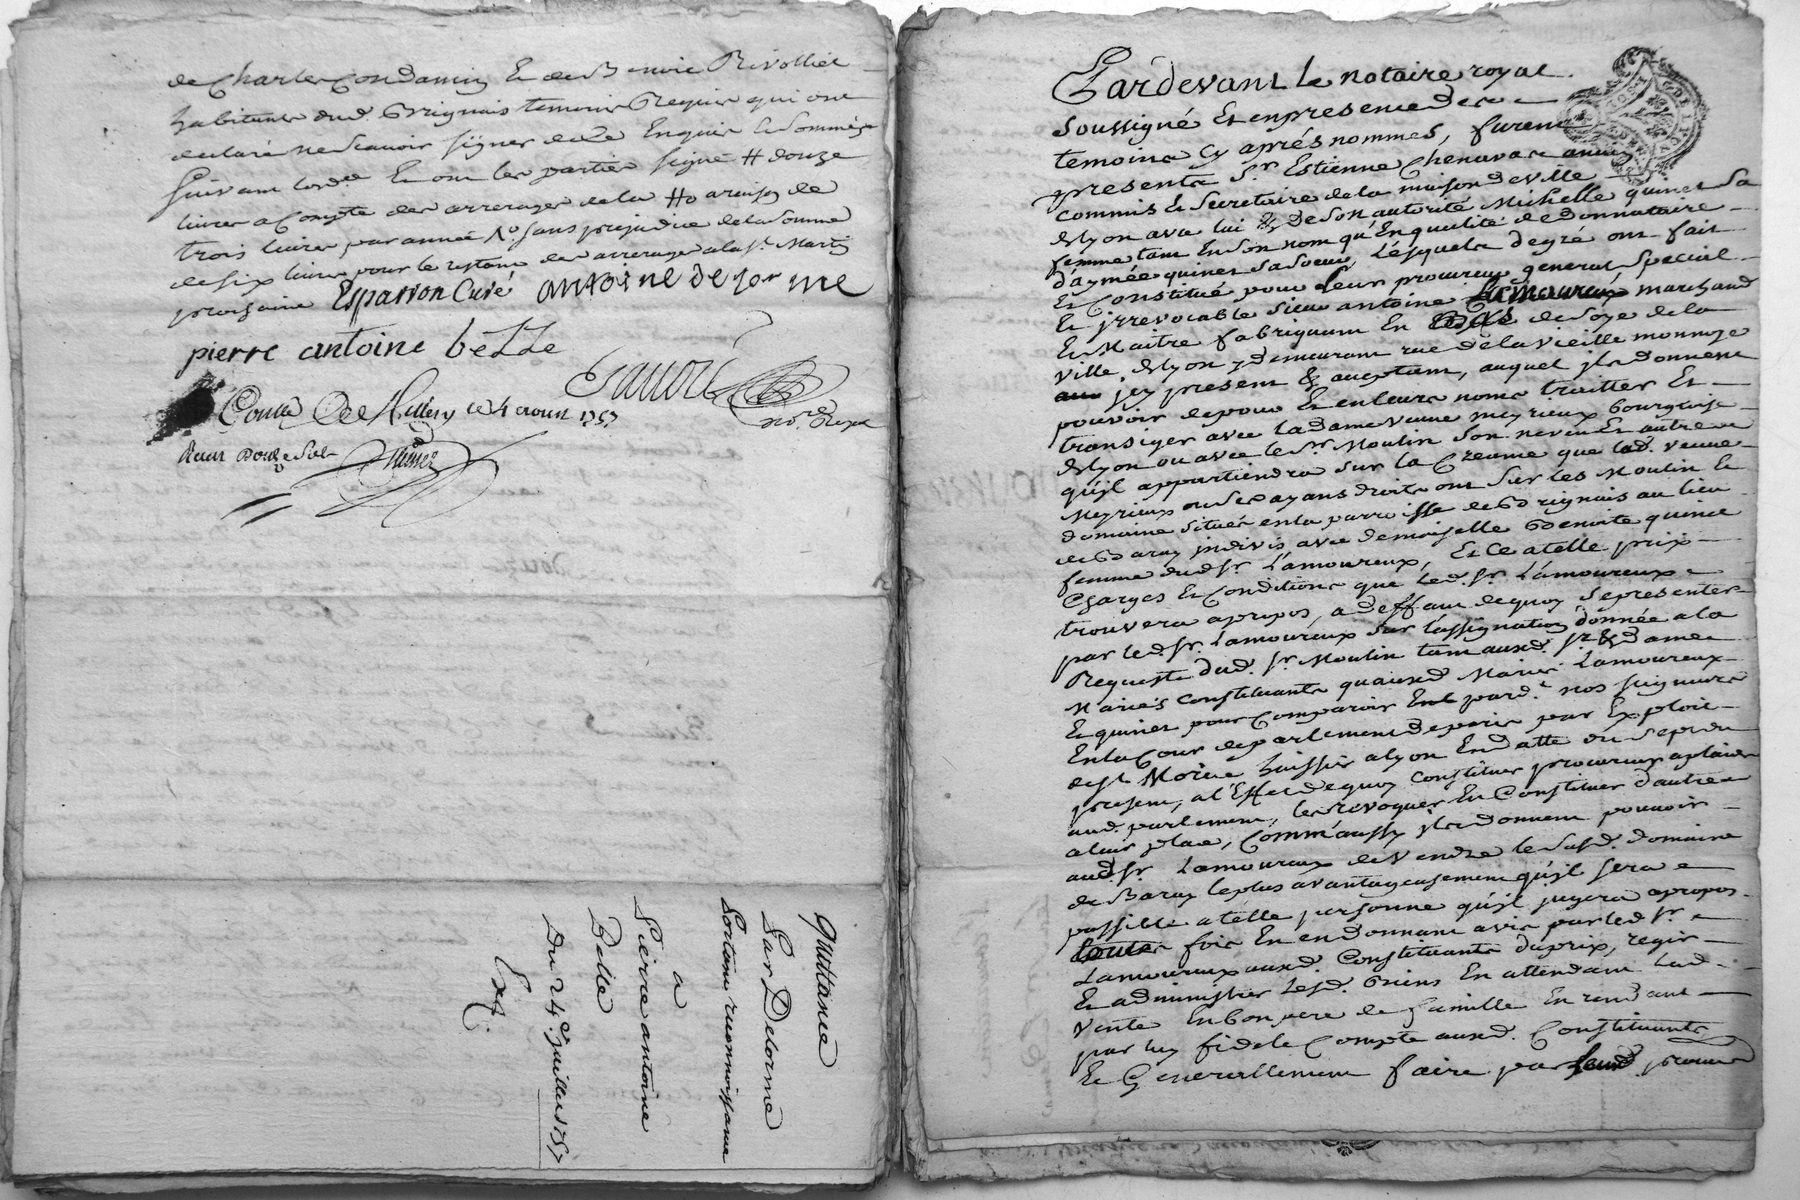 de Charles Condamin Et de Benoit Rivollier
habitants dud Grignais temoins Requis qui ont
declaré ne scavoir signer de ce Enquis & sommés
suivant lord.ce Et ont les parties signé # douze
livres a Compte des arrerages de la # a raison de
trois livres par année N.o sans prejudice de la somme
de six livres pour le restant des arrerages a la st. Martin
prochaine Esparron Curé antoine delorme
pierre antoine belle
no.re Royal
Conlle a Millery ce 4 aoust 1757
Reçu Douze Sols
quittance
Par Delorme
Portant reconnoissance
a
Pierre antoine
Belle
Du 24e. Juillet 1757
Ex.
Pardevant Le notaire royal
soussigné Et en presence des
temoins Cy aprés nommés, furent
presents Sr. Estienne Chenavas ancien
commis & secretaire de la maison de ville
de Lyon avec lui & De son autorité Michelle quinet sa
femme tant En son nom qu'En qualité de Donnataire
d'aymée quinet sa soeur, Lesquels de gré ont fait
Et Constitué pour Leur procureur general special
Et jrrevocable sieur antoine Lamoureux marchand
Et Maitre fabriquant En de soye de la
ville de Lyon y demeurant rue de la vieille monnoye
jcy present & acceptant, auquel jls donnent
pouvoir de pour Et en leurs noms traitter Et
transiger avec la dame veuve meyrieux bourgeoise
de Lyon ou avec le Sr. Moulin son neveu Et autres
qu'jl appartiendra sur la Creance que lad. veuve
Meyrieux ou ses ayans droits ont sur les Moulin &
domaine situés en la parroisse de Grignais au lieu
de Baray jndivis avec demoiselle Benoite quinet
femme dud Sr. Lamoureux, Et Ce a telle prix
Charges Et Conditions que led. Sr. Lamoureux
trouvera apropos, a deffaut de quoy se presenter
par led. Sr. Lamoureux sur l'assignation donnée a la
Requeste dud. Sr. Moulin tant auxd. Sr. & dame
Mariés Constituants qu'auxd Mariés Lamoureux
Et quinet pour Comparoir pard.t nos seigneurs
En la Cour de parlement de paris par Exploit
de st Morice huissier a Lyon En datte du sept du
present, a l'Effet de quoy Constituer procureur aplaider
aud. parlement, les revoquer En Constituer d'autres
a leur place, Comm'aussy jls donnent pouvoir
aud. Sr. Lamoureux de vendre le susd. domaine
de Baray le plus avantageusement qu'jl sera
possible a telle personne qu'jl jugera apropos
toutes fois En en donnant avis par led Sr.
Lamoureux auxd. Constituants du prix, regir
Et administrer lesd. Biens En attendant lad.
vente En bon pere de famille En rendant
par luy fidele Compte auxd. Constituants
Et Generallement faire par led procureur